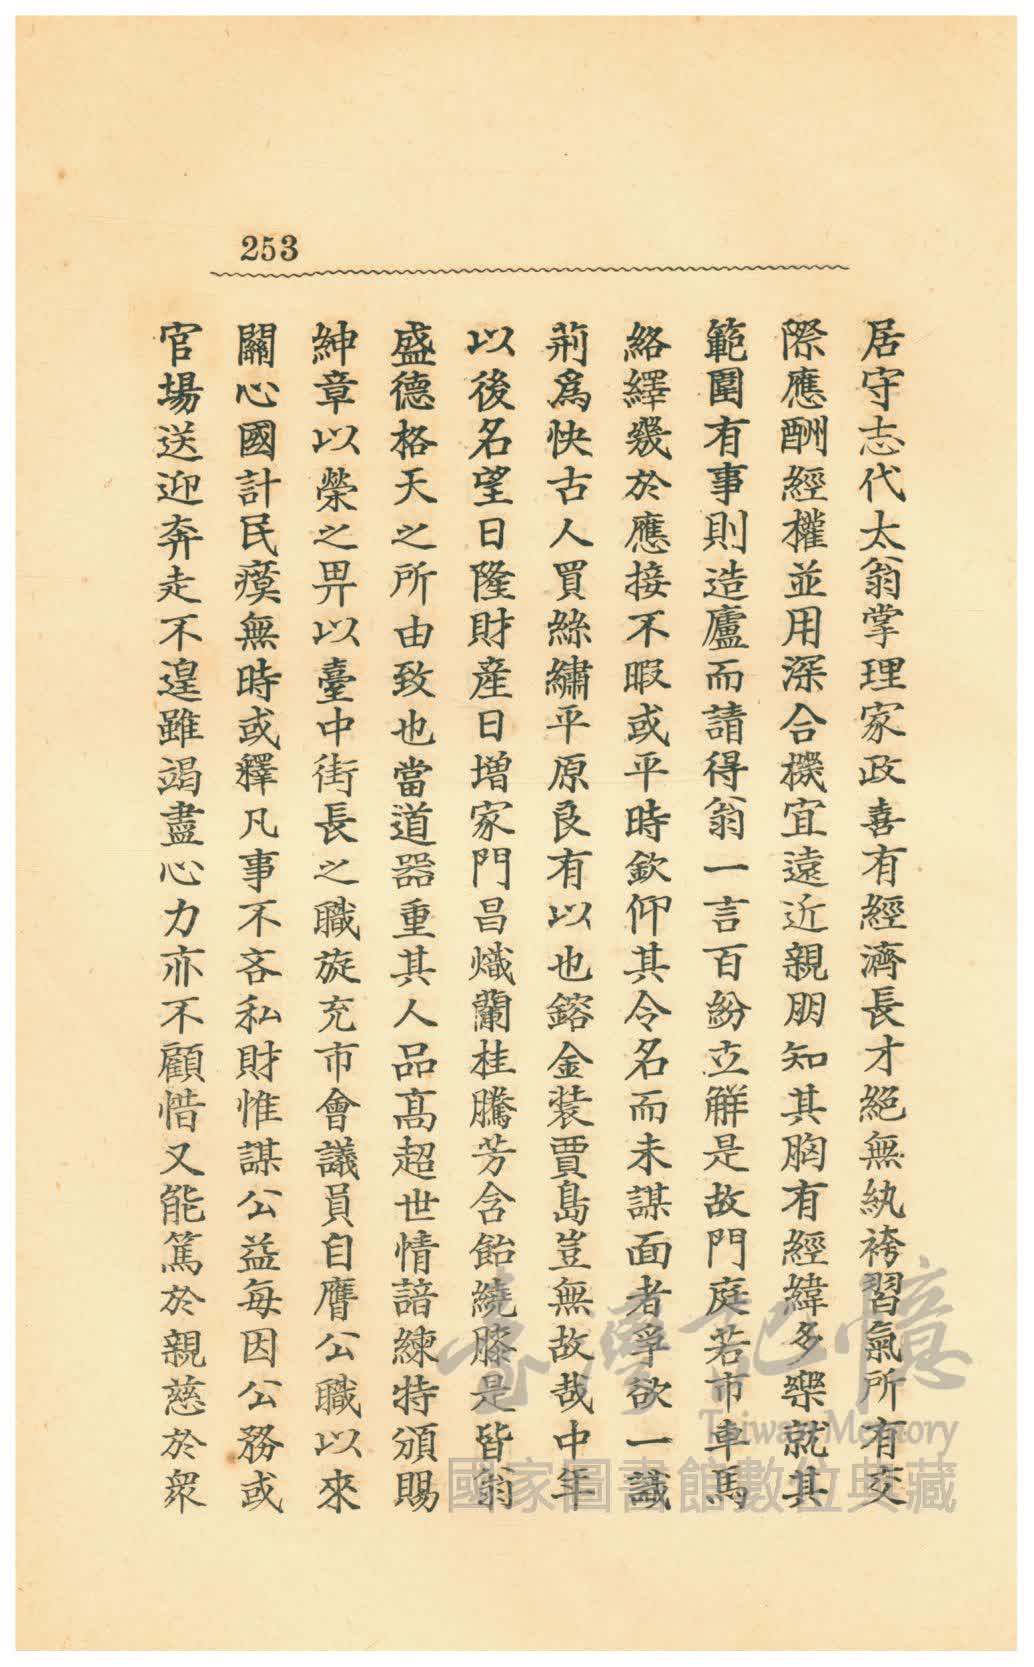 253
居守志代太翁掌理家政喜有經濟長才絕無紈袴習氣所有交
際應酬經權並用深合機宜遠近親朋知其胸有經緯多樂就其
範圍有事則造廬而請得翁一言百紛立解是故門庭若市車馬
絡繹幾於應接不暇或平時欽仰其令名而未謀面者孚欲一識
荊爲快古人買絲繡平原良有以也鎔金裝賈島豈無故哉中年
以後名望日隆財產日增家門昌熾蘭桂騰芳含飴繞膝是皆翁
盛德格天之所由致也當道器重其人品高超世情諳練特頒賜
紳章以榮之畀以臺中街長之職旋充市會議員自膺公職以來
關心國計民瘼無時或釋凡事不吝私財惟謀公益每因公務或
官場送迎奔走不遑雖竭盡心力亦不顧惜又能篤於親慈於眾
臺灣記憶
Taiwan Memory
國家圖書館數位典藏